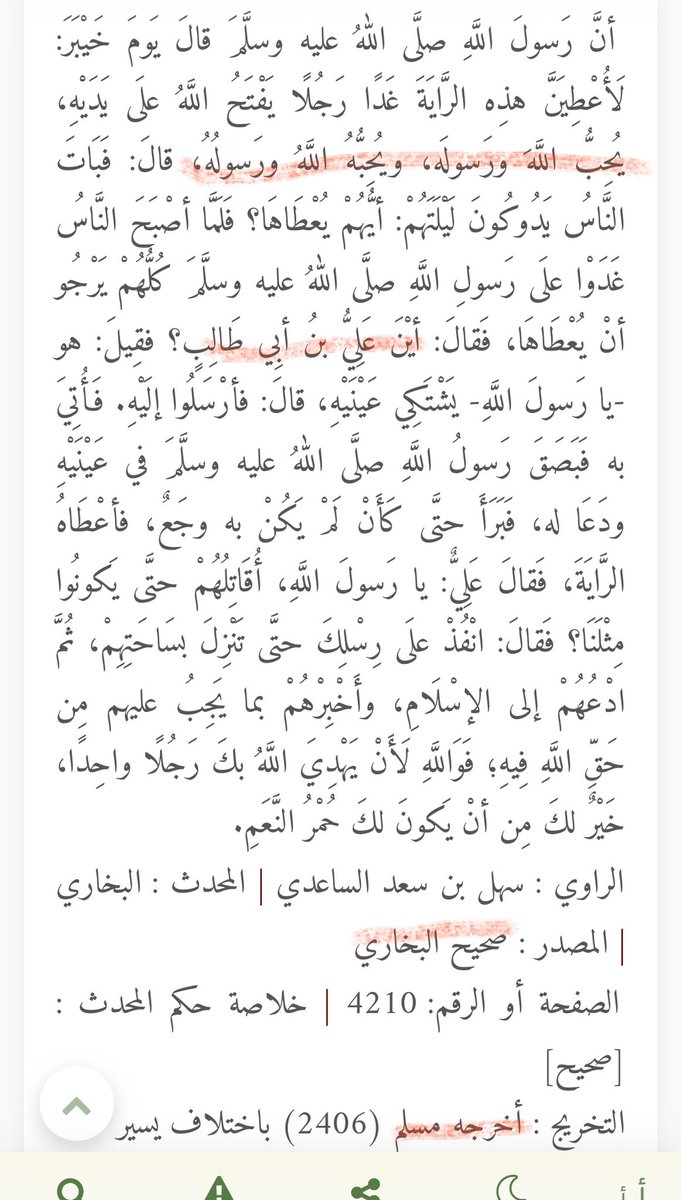 أنَّ رَسولَ اللَّهِ صلَّى اللهُ عليه وسلَّمَ قالَ يَومَ خَيْبَرَ:
لَأُعْطِيَنَّ هذِه الرَّايَةَ غَدًا رَجُلًا يَفْتَحُ اللَّهُ علَى يَدَيْهِ،
يُحِبُّ اللَّهَ ورَسولَه، ويُحِبُّهُ اللَّهُ ورَسولُهُ، قالَ: فَبَاتَ
النَّاسُ يَدُوكُونَ لَيْلَتَهُمْ: أيُّهُمْ يُعْطَاهَا؟ فَلَمَّا أصْبَحَ النَّاسُ
غَدَوْا علَى رَسولِ اللَّهِ صلَّى اللهُ عليه وسلَّمَ كُلُّهُمْ يَرْجُو
أنْ يُعْطَاهَا، فَقالَ: أيْنَ عَلِيُّ بنُ أبِي طَالِبٍ؟ فقِيلَ: هو
-يا رَسولَ اللَّهِ- يَشْتَكِي عَيْنَيْهِ، قالَ: فأرْسَلُوا إلَيْهِ. فَأُتِيَ
به فَبَصَقَ رَسولُ اللَّهِ صلَّى اللهُ عليه وسلَّمَ في عَيْنَيْهِ
ودَعَا له، فَبَرَأَ حتَّى كَأَنْ لَمْ يَكُنْ به وجَعٌ، فأعْطَاهُ
الرَّايَةَ، فَقالَ عَلِيٌّ: يا رَسولَ اللَّهِ، أُقَاتِلُهُمْ حتَّى يَكونُوا
مِثْلَنَا؟ فَقالَ: انْفُذْ علَى رِسْلِكَ حتَّى تَنْزِلَ بسَاحَتِهِمْ، ثُمَّ
ادْعُهُمْ إلى الإسْلَامِ، وأَخْبِرْهُمْ بما يَجِبُ عليهم مِن
حَقِّ اللَّهِ فِيهِ؛ فَوَاللَّهِ لَأَنْ يَهْدِيَ اللَّهُ بكَ رَجُلًا واحِدًا،
خَيْرٌ لكَ مِن أنْ يَكونَ لكَ حُمْرُ النَّعَمِ.
الراوي : سهل بن سعد الساعدي | المحدث : البخاري
| المصدر : صحيح البخاري
الصفحة أو الرقم: 4210 | خلاصة حكم المحدث :
[صحيح]
التخريج : أخرجه مسلم (2406) باختلاف يسير